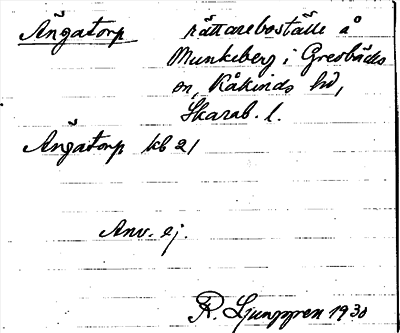 Ängatorp rättareboställe å
Munkeberg i Grevbäcks
sn, Kåkinds hd,
Skarab. l.
Ängatorp kb 21
Anv. ej.
R. Ljunggren 1930